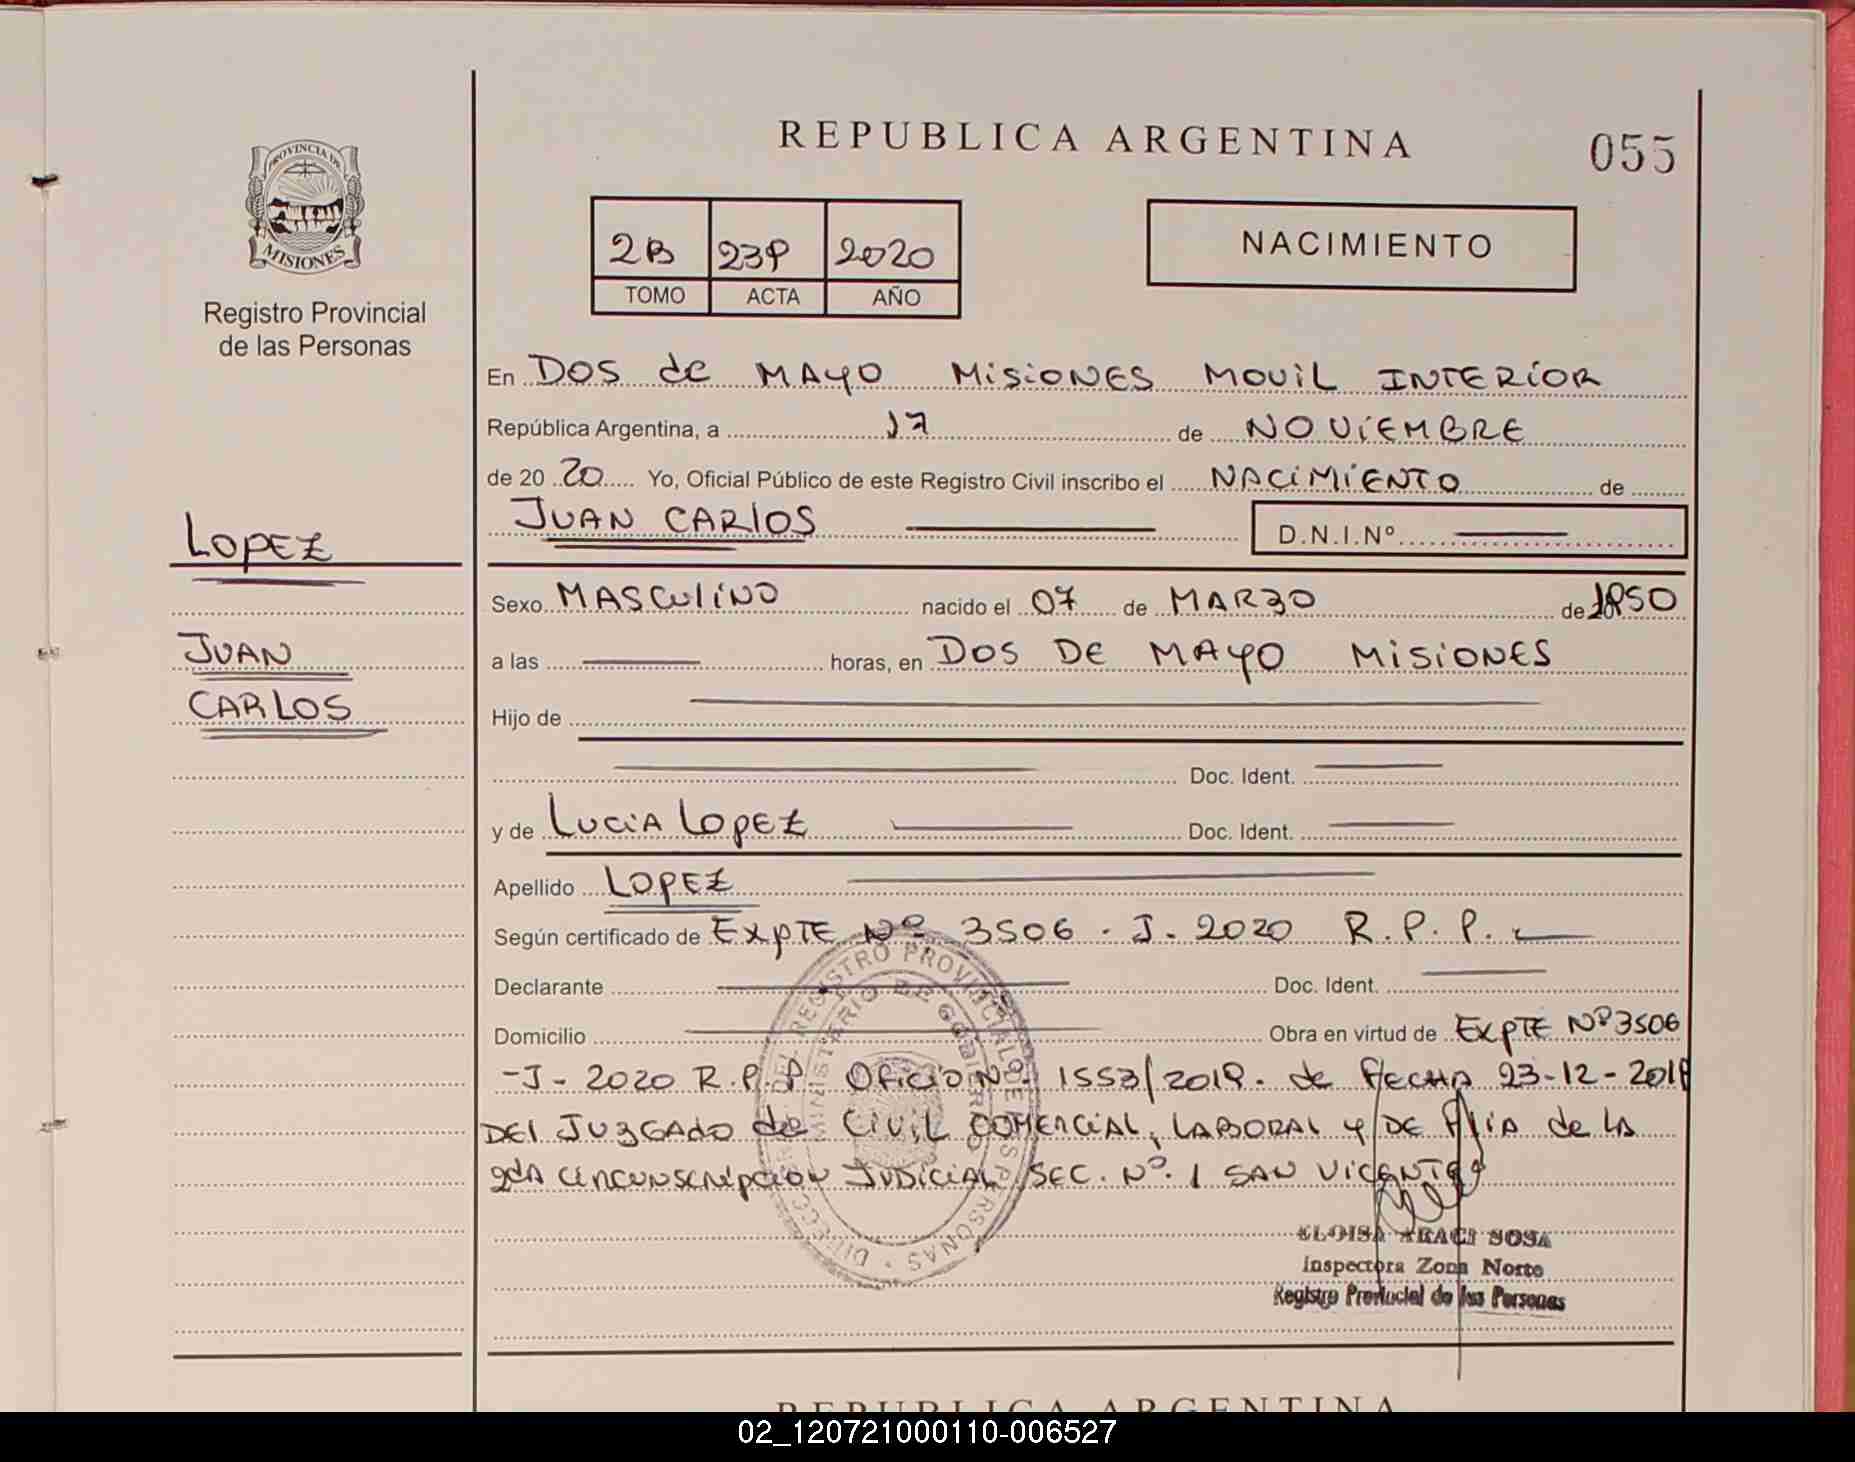 REPUBLICA ARGENTINA
055
PROVINCIA DE
MISIONES
Registro Provincial
de las Personas
2B 239 2020
TOMO ACTA AÑO
NACIMIENTO
En DOS de MAYO MISIONES MOVIL INTERIOR
República Argentina, a 17 de NOVIEMBRE
de 20 20 Yo, Oficial Público de este Registro Civil inscribo el NACIMIENTO de
JUAN CARLOS D.N.I.Nº
LOPEZ
JUAN
CARLOS
Sexo MASCULINO nacido el 07 de MARZO de 1950
a las horas, en DOS DE MAYO MISIONES
Hijo de
Doc. Ident.
y de LUCIA LOPEZ Doc. Ident.
Apellido LOPEZ
Según certificado de EXPTE Nº 3506 - J - 2020 R.P.P.
Declarante Doc. Ident.
Domicilio Obra en virtud de EXPTE Nº 3506
-J- 2020 R.P.P OFICIO Nº 1553/2019. de FECHA 23-12-2019
DEL JUZGADO de CIVIL COMERCIAL, LABORAL Y DE FLIA de LA
2da CIRCUNSCRIPCION JUDICIAL SEC. Nº 1 SAN VICENTE
DEL REGISTRO PROVINCIAL DE LAS PERSONAS
MINISTERIO DE GOBIERNO
ELOISA ARACI SOSA
Inspectora Zona Norte
Registro Provincial de las Personas
REPUBLICA ARGENTINA
02_120721000110-006527